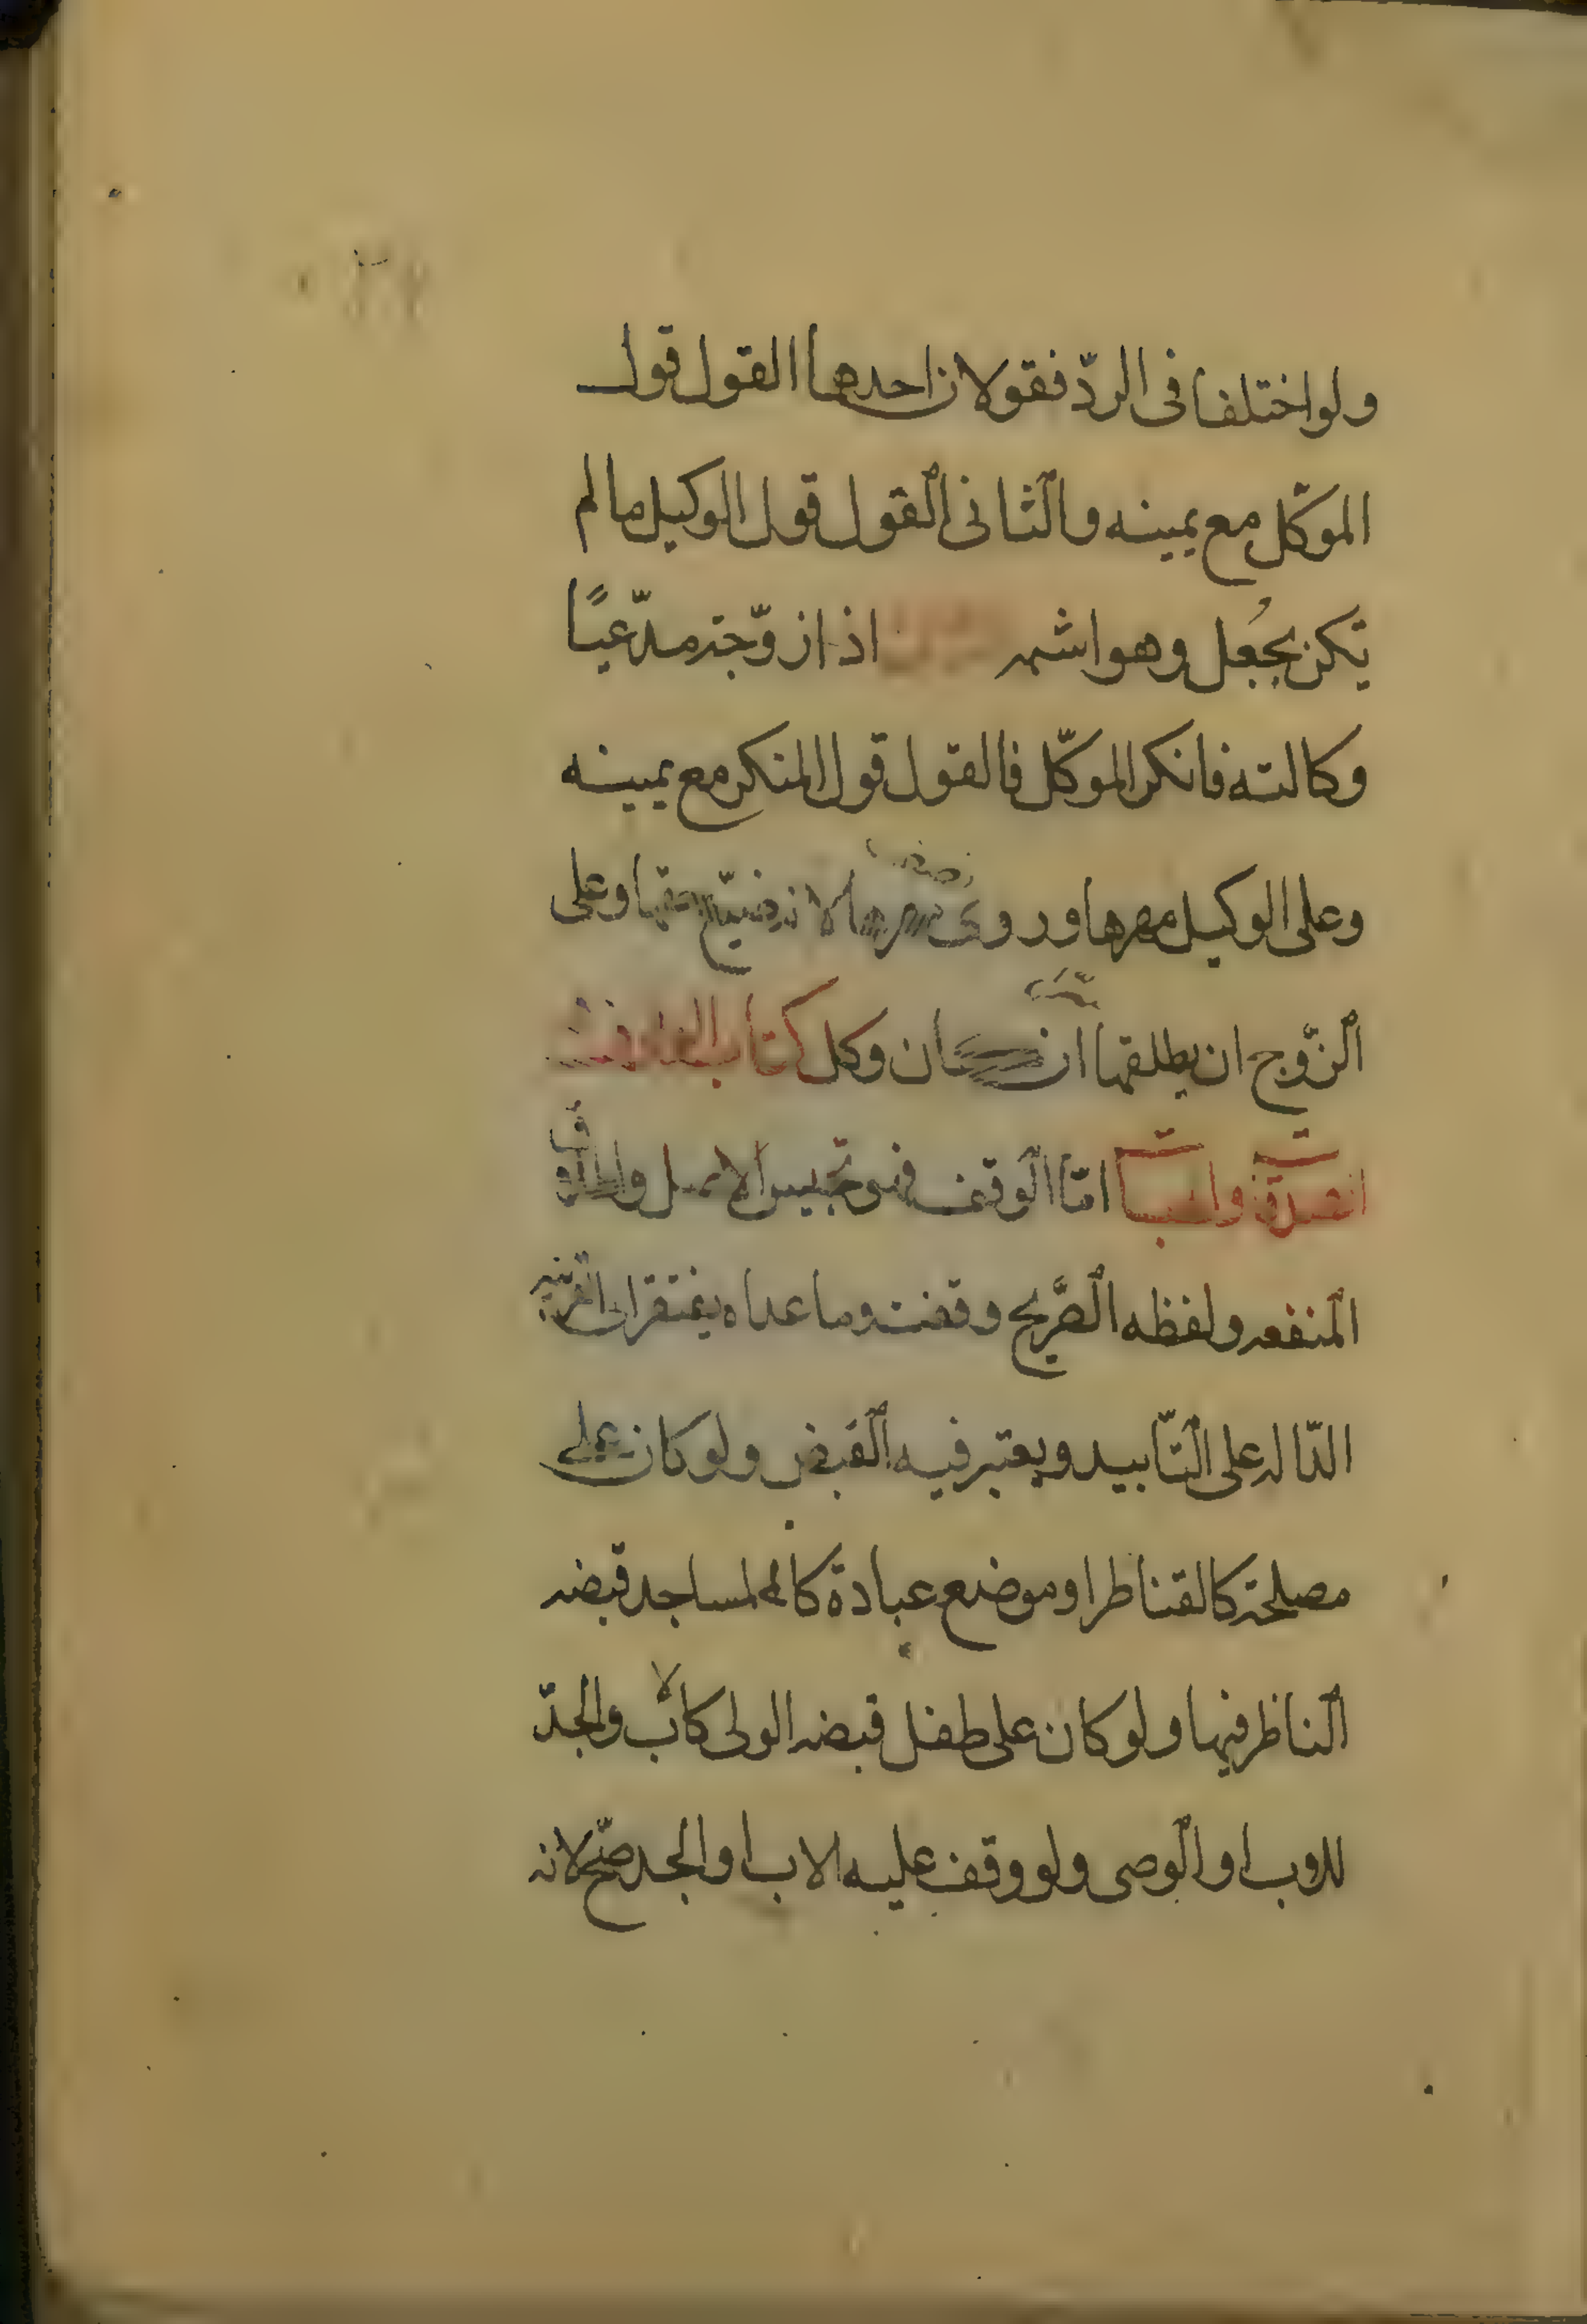 ولو اختلفا فى الردّ فقولان احدهما القول قول
الموكّل مع يمينه والثانى القول قول الوكيل مالم
يكن بجُعل وهو اشبه اذا زوّجته مدّعيًا
وكالته فانكر الموكّل فالقول قول المنكر مع يمينه
وعلى الوكيل مهرها وروى نصف مهرها لانه ضيّع حقها وعلى
الزّوج ان يطلقها ان كان وكل كتاب الوقوف
والصدقات والهبات امّا الوقف فهو تحبيس الاصل واطلاق
المنفعه ولفظه الصَّريح وقفت وما عداه يفتقر الى القرينه
الدّاله على التّابيد ويعتبر فيه القبض ولو كان على
مصلحة كالقناطر او موضع عبادة كالمساجد قبضه
الناظر فيها ولو كان على طفل قبضه الولى كالاب والجدّ
للاب او الوصى ولو وقف عليه الاب او الجد صحّ لانه